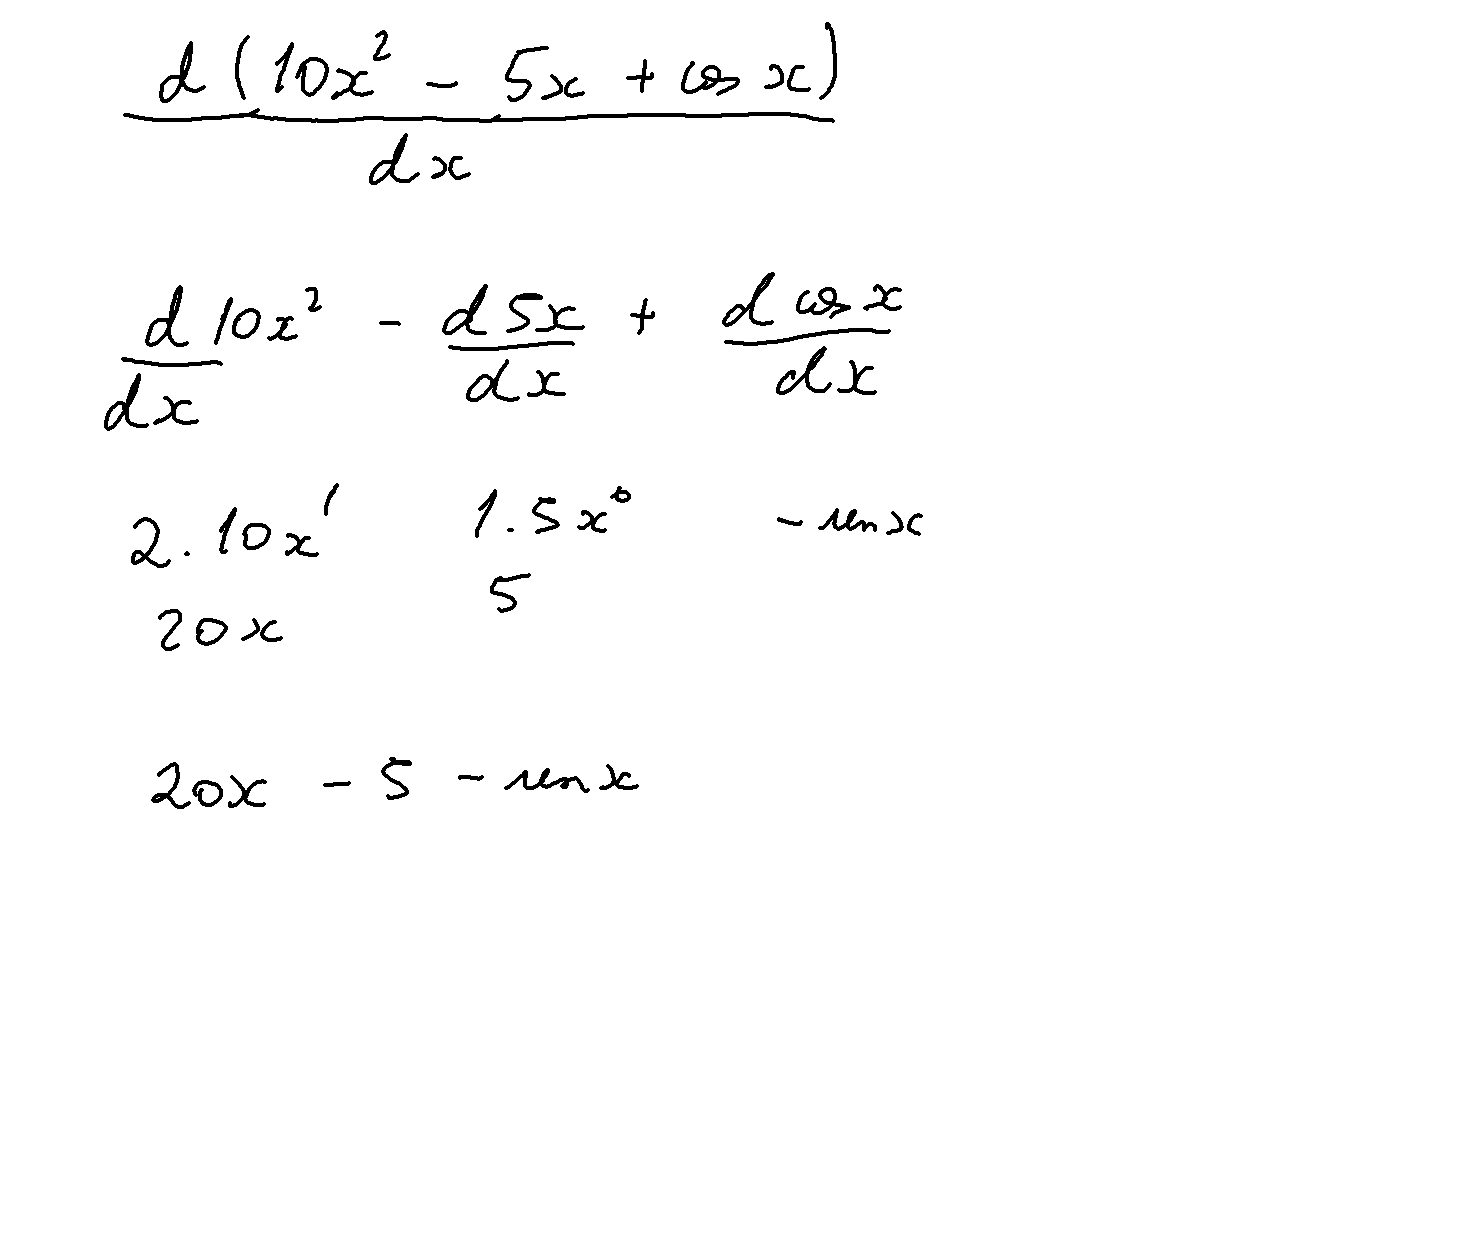 d(10x² - 5x + cos x)
dx
d 10x² - d 5x + d cos x
dx dx dx
2.10x¹ 1.5x⁰ - sen x
5
20x
20x - 5 - sen x